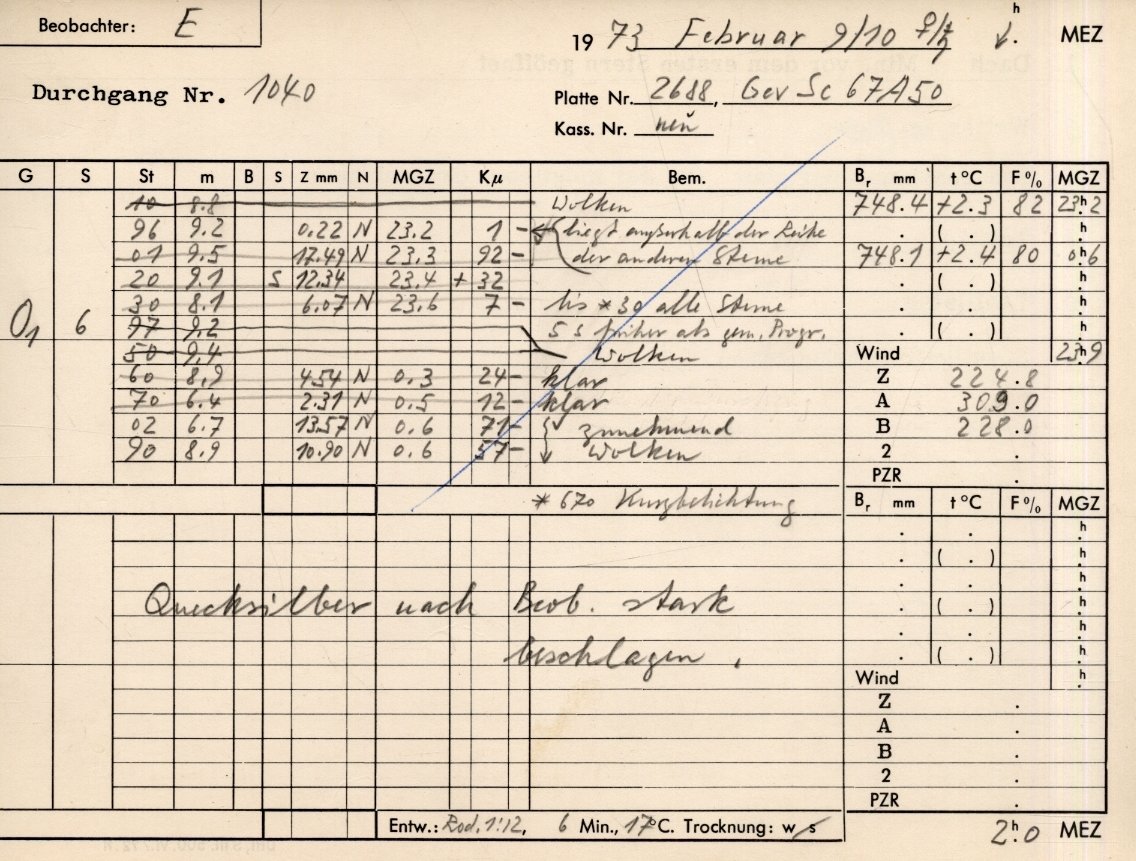 Beobachter: E
1973 Februar 9/10 ♀/♄ h . MEZ
Durchgang Nr. 1040
Platte Nr. 2688, Gev Sc 67A50
Kass. Nr. neu
G S St m B S Z mm N MGZ Kμ Bem. Br mm t °C F % MGZ
10 8.8 Wolken 748.4 +2.3 82 23h2
96 9.2 0.22 N 23.2 1 - liegt außerhalb der Reihe . ( . ) h
01 9.5 17.49 N 23.3 92 - der anderen Sterne 748.1 +2.4 80 0h6
20 9.1 S 12.34 23.4 + 32 . ( . ) h
30 8.1 6.07 N 23.6 7 - bis * 30 alle Sterne . . h
O1 6 97 9.2 5 s früher als gem. Progr. . ( . ) h
50 9.4 Wolken Wind 23h9
60 8.9 4.54 N 0.3 24 - klar Z 224.8
70 6.4 2.31 N 0.5 12 - klar A 309.0
02 6.7 13.57 N 0.6 71 - zunehmend B 228.0
90 8.9 10.90 N 0.6 57 - Wolken 2 .
PZR .
* 670 Kurzbelichtung Br mm t °C F % MGZ
. . h
. ( . ) h
. . h
Quecksilber nach Beob. stark . ( . ) h
. . h
beschlagen. . ( . ) h
Wind h
Z .
A .
B .
2 .
PZR .
Entw.: Rod. 1:12, 6 Min., 17°C. Trocknung: w/s 2h.0 MEZ